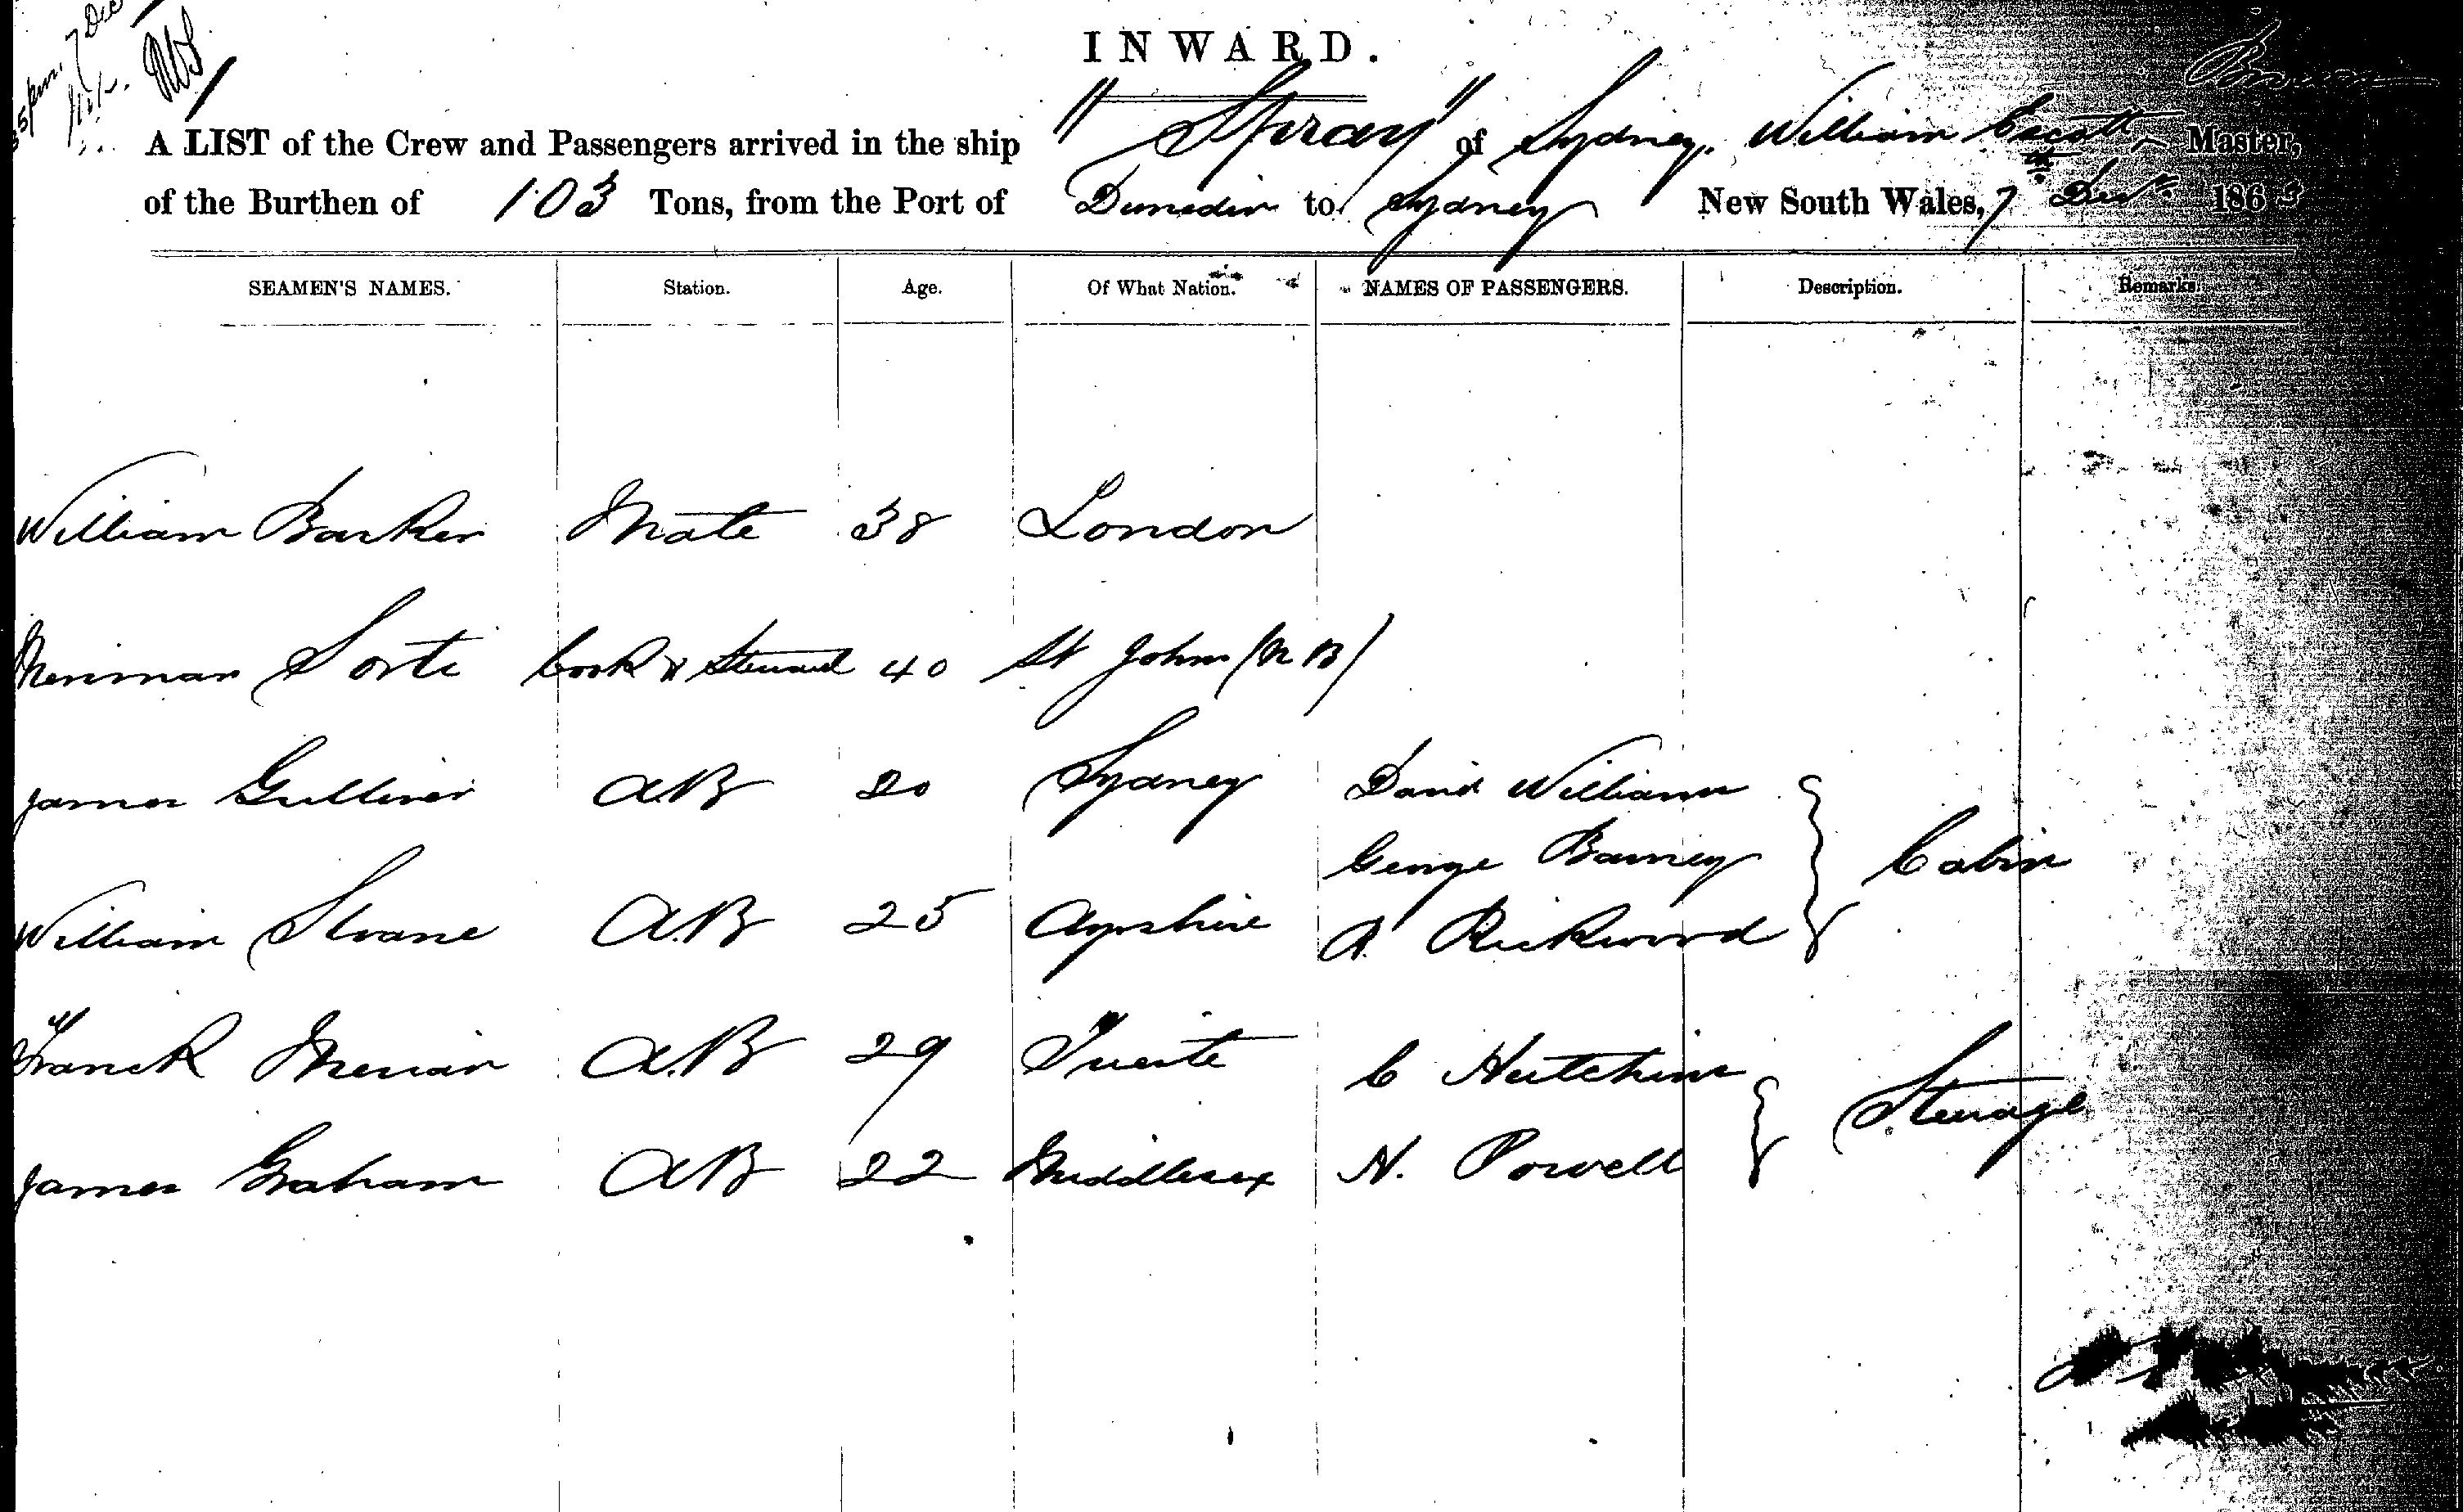 7 Dec
INWARD.
A LIST of the Crew and Passengers arrived in the ship "Spray" of Sydney, William Escott Master,
of the Burthen of 103 Tons, from the Port of Dunedin to Sydney New South Wales, 7th Decr 1863
SEAMEN'S NAMES. Station. Age. Of What Nation. NAMES OF PASSENGERS. Description. Remarks.
William Barker Mate 38 London
Cook & Steward 40 St John (N B)
James Gulliver AB 20 Sydney David Williams
George Barney Cabin
William Sloane A.B 25 Ayrshire A. Rickwood
Franck A.B 29 Trieste C Hutchins
Steerage
James Graham AB 22 Middlesex N. Powell